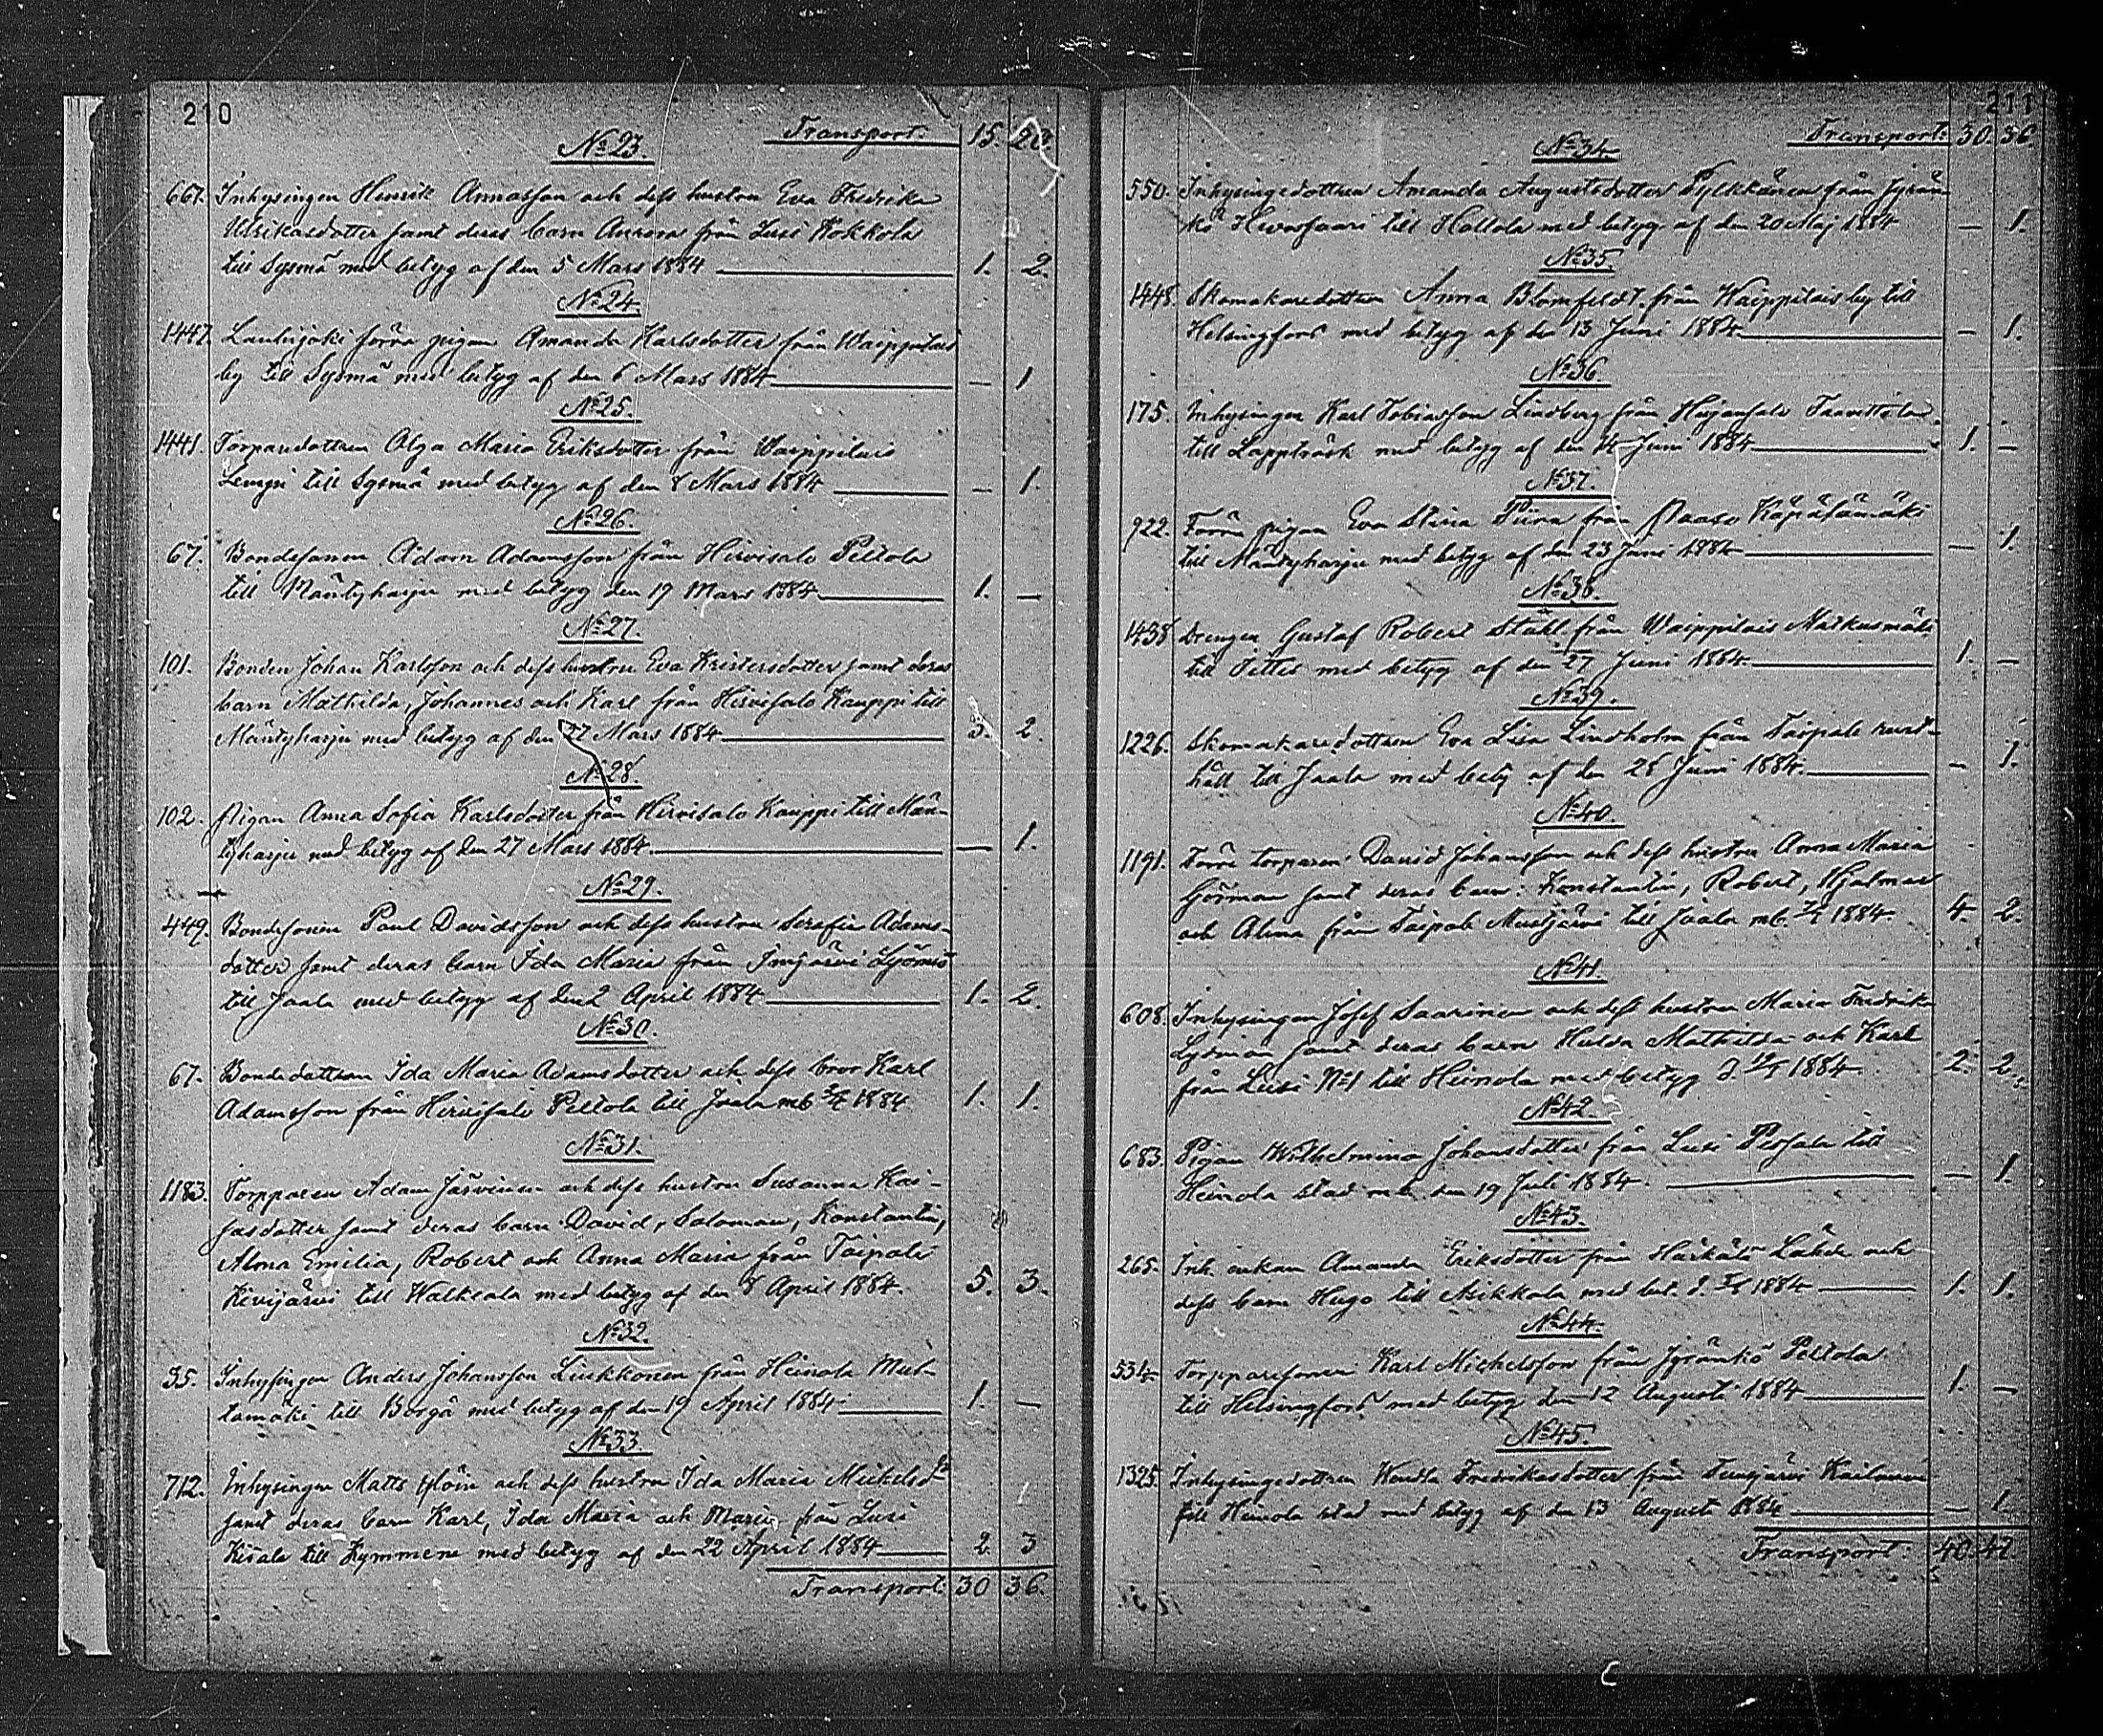 210
Transport. 15. 20.
No 23.
667. Inhysingen Henrik Annasson och dess hustru Eva Fredrika
Ulrikasdotter samt deras barn Aurora från Lusi Kokkola
till Sysmä med betyg af den 5 Mars 1884 1. 2.
No 24.
1447. förra pigan Amanda Karlsdotter från Waippilais
by till Sysmä med betyg af den 6 Mars 1884 — 1
No 25.
1441. Torparedottren Olga Maria Eriksdotter från Waippilais
till Sysmä med betyg af den 8 Mars 1884 — 1.
No 26.
67. Bondesonen Adam Adamsson från Hirvisalo Peltola
till Mäntyharju med betyg den 19 Mars 1884 1. —
No 27.
101. Bonden Johan Karlsson och dess hustru Eva Kristersdotter samt deras
barn Mathilda, Johannes och Karl från Hirvisalo Kauppi till
Mäntyharju med betyg af den 27 Mars 1884 3. 2.
No 28.
102. Pigan Anna Sofia Karlsdotter från Hirvisalo Kauppi till Män-
tyharju med betyg af den 27 Mars 1884. — 1.
No 29.
449. Bondesonen Paul Davidsson och dess hustru Serafia Adams-
dotter samt deras barn Ida Maria från Imjärvi
till Jaala med betyg af den 2 April 1884 1. 2.
No 30.
67. Bondedottren Ida Maria Adamsdotter och dess bror Karl
Adamsson från Hirvisalo Peltola till Jaala mb 1884 1. 1.
No 31.
1183. Torpparen Adam Järvinen och dess hustru Susanna Kai-
sasdotter samt deras barn David, Salomon, Konstantin,
Alma Emilia, Robert och Anna Maria från Taipale
Kivijärvi till Walkeala med betyg af den 8 April 1884. 5. 3.
No 32.
35. Inhysingen Anders Johansson Liukkonen från Heinola
till Borgå med betyg af den 19 April 1884 1. —
No 33
712. Inhysingen Matts och dess hustru Ida Maria Mickelsdr
samt deras barn Karl, Ida Maria och Maria från Lusi
till Kymmene med betyg af den 22 April 1884 2. 3
Transport: 30 36.
211
Transport: 30. 36.
No 34.
550. Inhysingedottren Amanda Augustsdotter Pylkkänen från Jyrän-
kö Hevossaari till Hollola med betyg af den 20 Maj 1884 — 1.
No 35.
1448. Skomakaredottren Anna Blomfeldt från Waippilais by till
Helsingfors med betyg af den 13 Juni 1884 — 1.
No 36
175. Inhysingen Karl Tobiasson Lindberg från Taavettila
till Lappträsk med betyg af den 14 Juni 1884 1. —
No 37.
922. Förra pigan Eva Stina från Paaso
till Mäntyharju med betyg af den 23 Juni 1884 — 1.
No 38.
1438. Drengen Gustaf Robert Ståhl från Waippilais Markusmäki
till Sittis med betyg af den 27 Juni 1884 1. —
No 39.
1226. Skomakaredottren Eva Lisa Lindholm från Taipale
till Jaala med betyg af den 28 Juni 1884. — 1.
No 40.
1191. Förre torparen David Johansson och dess hustru Anna Maria
Görman samt deras barn: Konstantin, Robert, Hjalmar
och Alma från Taipale Mustjärvi till Jaala mb. 1884 4. 2.
No 41.
608. Inhysingen Josef Saarinen och dess hustru Maria Fredrika
samt deras barn Hulda Mathilda och Karl
från Lusi No 1 till Heinola med betyg d. 1884 2. 2.
No 42.
683. Pigan Wilhelmina Johansdotter från Lusi till
Heinola stad mb den 19 Juli 1884. — 1.
No 43.
265. Inh. enkan Amanda Eriksdotter från Härkälä och
dess barn Hugo till Asikkala med bet. d. 1884 1. 1.
No 44.
534. Torpparesonen Karl Michelsson från Jyränkö Peltola
till Helsingfors med betyg den 12 Augusti 1884 1. —
No 45.
1325. Inhysingedottren Wendla Fredrikasdotter från
till Heinola stad med betyg af den 13 Augusti 1884 — 1
Transport: 40. 47.